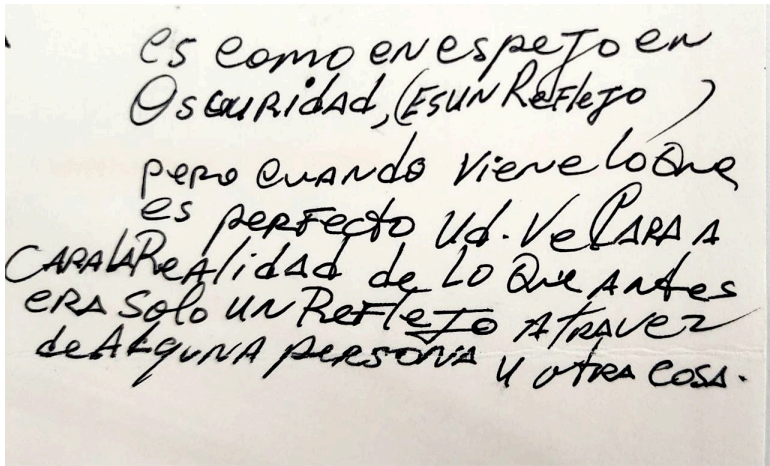 es como en espejo en
Oscuridad, (ES UN Reflejo)
pero cuando viene lo que
es perfecto Ud. Ve CARA A
CARA LA Realidad de lo que antes
ERA solo UN Reflejo Atravez
de Alguna persona u otra cosa.